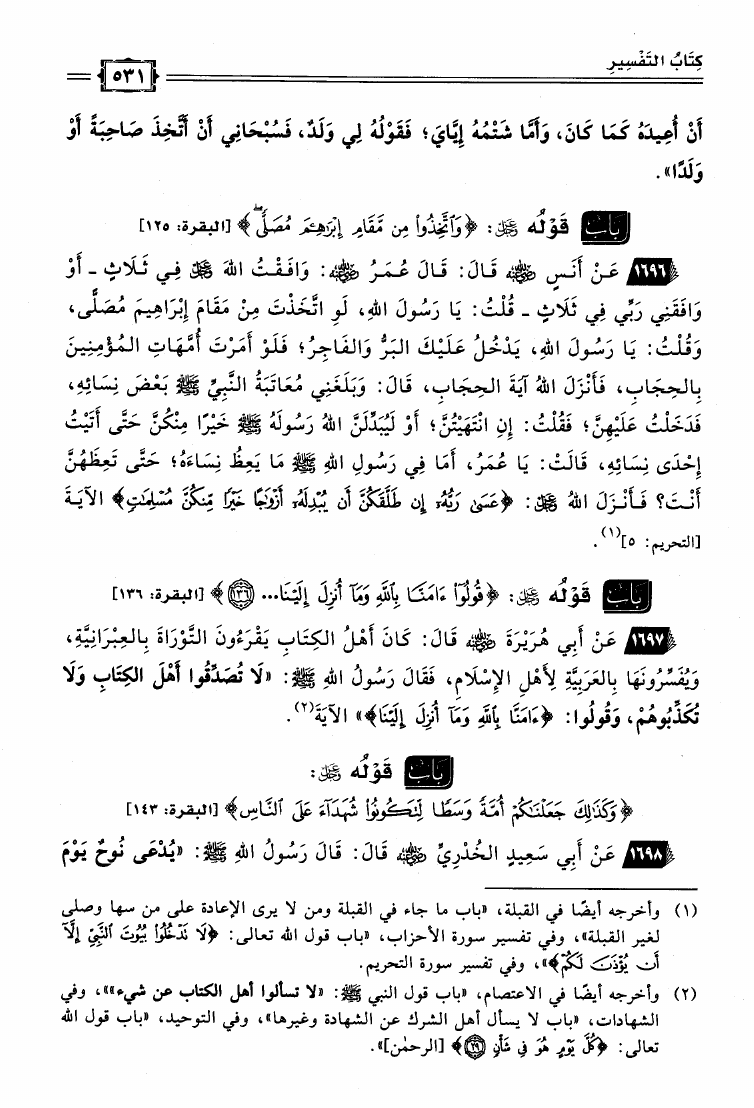 كِتَابُ التَّفْسِيرِ
٥٣١
أَنْ أُعِيدَهُ كَمَا كَانَ، وَأَمَّا شَتْمُهُ إِيَّايَ؛ فَقَوْلُهُ لِي وَلَدٌ، فَسُبْحَانِي أَنْ أَتَّخِذَ صَاحِبَةً أَوْ
وَلَدًا».
بَابٌ قَوْلُه ﷿: ﴿وَاتَّخِذُوا۟ مِن مَّقَامِ إِبْرَٰهِـۧمَ مُصَلًّىۖ﴾ [البقرة: ١٢٥]
١٦٩٦ عَنْ أَنَسٍ ﵁ قَالَ: قَالَ عُمَرُ ﵁: وَافَقْتُ اللهَ ﷿ فِي ثَلَاثٍ ـ أَوْ
وَافَقَنِي رَبِّي فِي ثَلَاثٍ ـ قُلْتُ: يَا رَسُولَ اللهِ، لَوِ اتَّخَذْتَ مِنْ مَقَامِ إِبْرَاهِيمَ مُصَلًّى،
وَقُلْتُ: يَا رَسُولَ اللهِ، يَدْخُلُ عَلَيْكَ البَرُّ وَالفَاجِرُ؛ فَلَوْ أَمَرْتَ أُمَّهَاتِ المُؤْمِنِينَ
بِالحِجَابِ، فَأَنْزَلَ اللهُ آيَةَ الحِجَابِ، قَالَ: وَبَلَغَنِي مُعَاتَبَةُ النَّبِيِّ ﷺ بَعْضَ نِسَائِهِ،
فَدَخَلْتُ عَلَيْهِنَّ؛ فَقُلْتُ: إِنِ انْتَهَيْتُنَّ؛ أَوْ لَيُبَدِّلَنَّ اللهُ رَسُولَهُ ﷺ خَيْرًا مِنْكُنَّ حَتَّى أَتَيْتُ
إِحْدَى نِسَائِهِ، قَالَتْ: يَا عُمَرُ، أَمَا فِي رَسُولِ اللهِ ﷺ مَا يَعِظُ نِسَاءَهُ؛ حَتَّى تَعِظَهُنَّ
أَنْتَ؟ فَأَنْزَلَ اللهُ ﷿: ﴿عَسَىٰ رَبُّهُۥ إِن طَلَّقَكُنَّ أَن يُبْدِلَهُۥ أَزْوَٰجًا خَيْرًا مِّنكُنَّ مُسْلِمَـٰتٍ﴾ الآيَةَ
[التحريم: ٥](١).
بَابٌ قَوْلُه ﷿: ﴿قُولُوٓا۟ ءَامَنَّا بِٱللَّهِ وَمَآ أُنزِلَ إِلَيْنَا... ١٣٦﴾ [البقرة: ١٣٦]
١٦٩٧ عَنْ أَبِي هُرَيْرَةَ ﵁ قَالَ: كَانَ أَهْلُ الكِتَابِ يَقْرَءُونَ التَّوْرَاةَ بِالعِبْرَانِيَّةِ،
وَيُفَسِّرُونَهَا بِالعَرَبِيَّةِ لِأَهْلِ الإِسْلَامِ، فَقَالَ رَسُولُ اللهِ ﷺ: «لَا تُصَدِّقُوا أَهْلَ الكِتَابِ وَلَا
تُكَذِّبُوهُمْ، وَقُولُوا: ﴿ءَامَنَّا بِٱللَّهِ وَمَآ أُنزِلَ إِلَيْنَا﴾» الآيَةَ(٢).
بَابٌ قَوْلُه ﷿:
﴿وَكَذَٰلِكَ جَعَلْنَـٰكُمْ أُمَّةً وَسَطًا لِّتَكُونُوا۟ شُهَدَآءَ عَلَى ٱلنَّاسِ﴾ [البقرة: ١٤٣]
١٦٩٨ عَنْ أَبِي سَعِيدٍ الخُدْرِيِّ ﵁ قَالَ: قَالَ رَسُولُ اللهِ ﷺ: «يُدْعَى نُوحٌ يَوْمَ
(١) وأخرجه أيضًا في القبلة، «باب ما جاء في القبلة ومن لا يرى الإعادة على من سها وصلى
لغير القبلة»، وفي تفسير سورة الأحزاب، «باب قول الله تعالى: ﴿لَا نَدْخُلُوا۟ بُيُوتَ ٱلنَّبِىِّ إِلَّآ
أَن يُؤْذَنَ لَكُمْ﴾»، وفي تفسير سورة التحريم.
(٢) وأخرجه أيضًا في الاعتصام، «باب قول النبي ﷺ: «لا تسألوا أهل الكتاب عن شيء»»، وفي
الشهادات، «باب لا يسأل أهل الشرك عن الشهادة وغيرها»، وفي التوحيد، «باب قول الله
تعالى: ﴿كُلَّ يَوْمٍ هُوَ فِى شَأْنٍ ٢٩﴾ [الرحمن]».